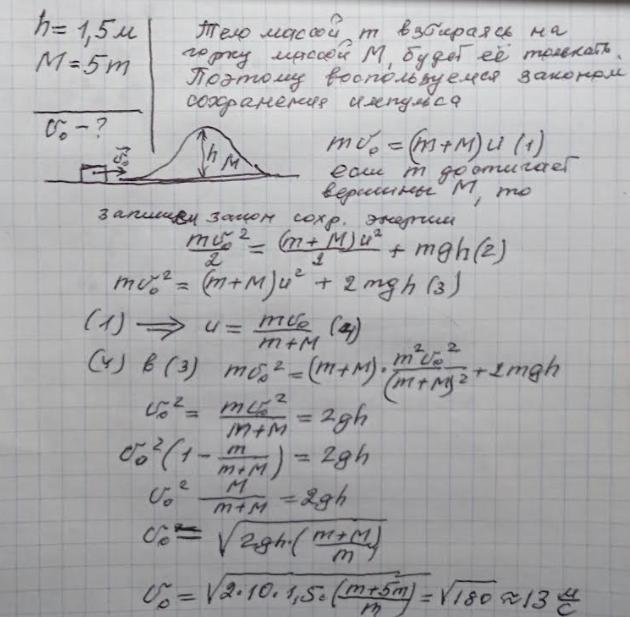 h = 1,5м
M = 5m
υ₀ - ?
Тело массой m взбираясь на
горку массой M, будет её толкать.
Поэтому воспользуемся законом
сохранения импульса
υ₀
h
M
mυ₀ = (m+M) u (1)
если m достигает
вершины M, то
запишем закон сохр. энергии
mυ₀²/2 = (m+M)u²/2 + mgh (2)
mυ₀² = (m+M)u² + 2mgh (3)
(1) ⟹ u = mυ₀/(m+M) (4)
(4) в (3) mυ₀² = (m+M)·m²υ₀²/(m+M)² + 2mgh
υ₀² = mυ₀²/(m+M) = 2gh
υ₀² (1 - m/(m+M)) = 2gh
υ₀² M/(m+M) = 2gh
υ₀ = √(2gh·((m+M)/m))
υ₀ = √(2·10·1,5·((m+5m)/m)) = √180 ≈ 13 м/с